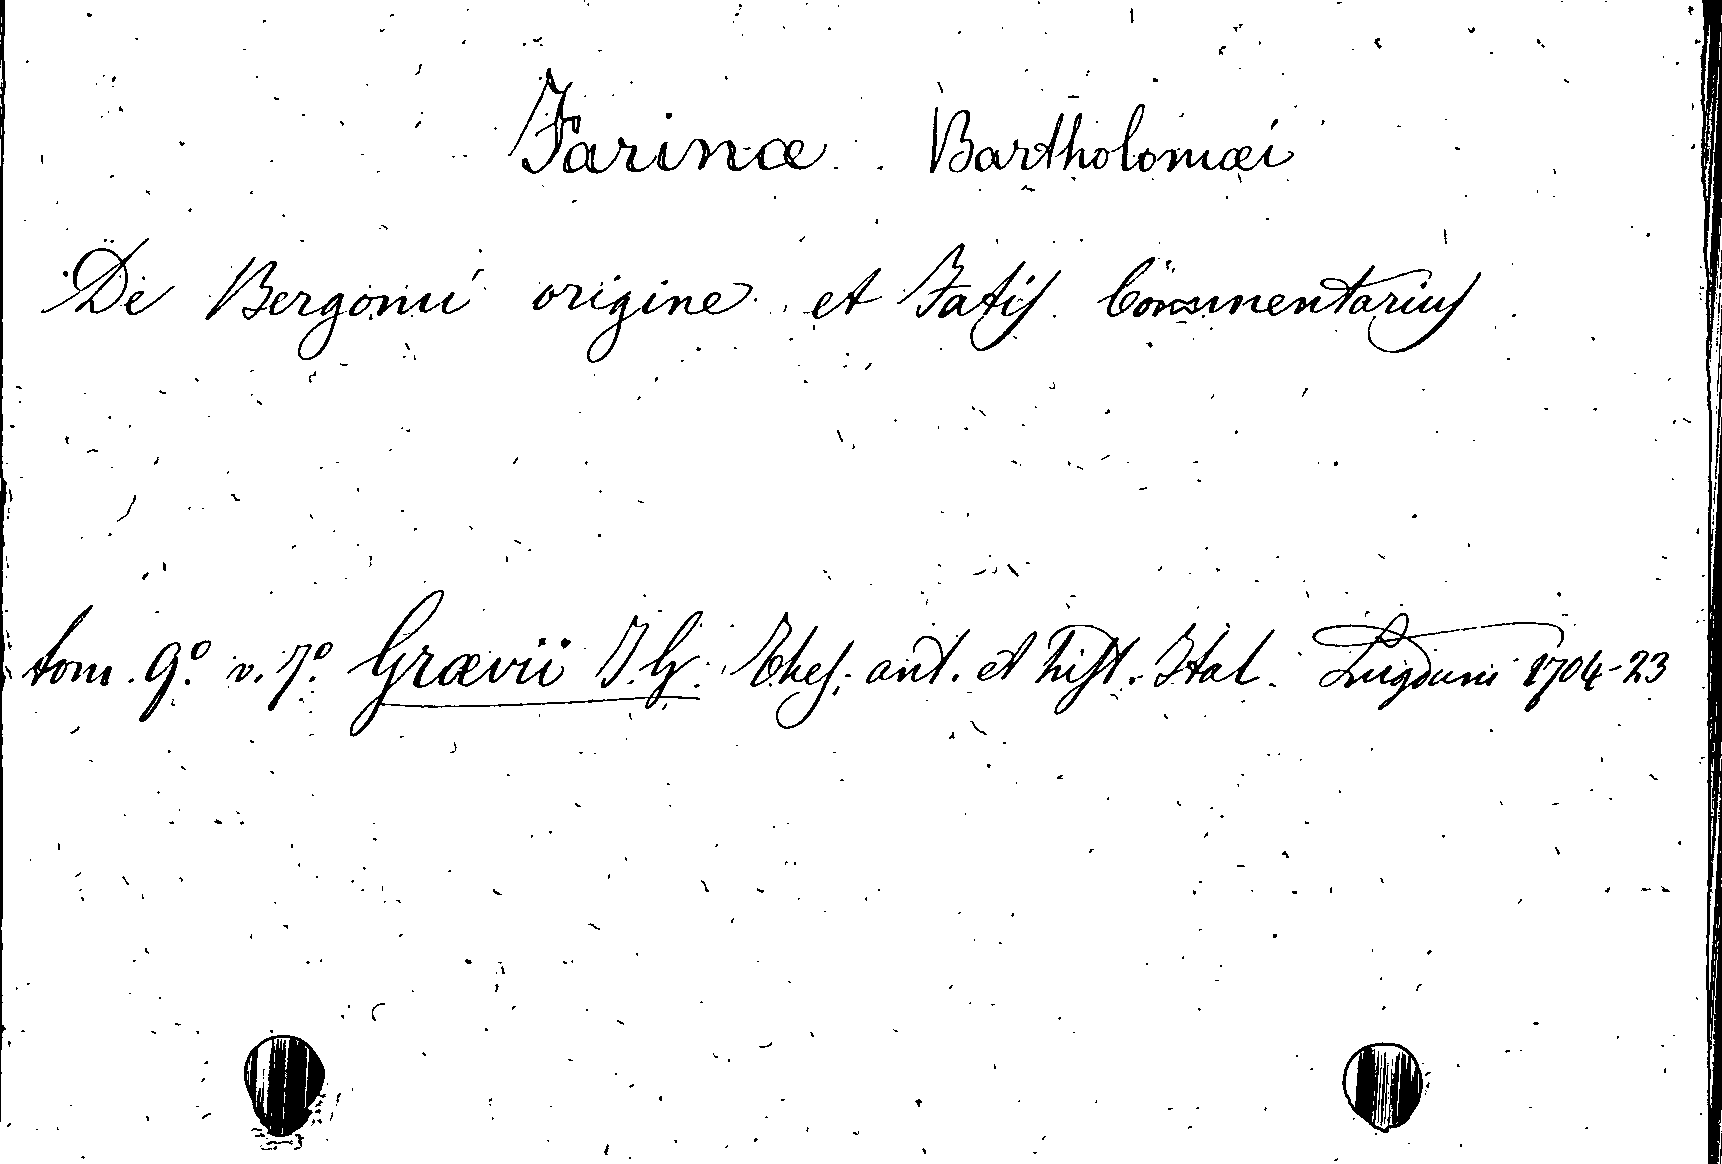 Farinæ Bartholomæi
De Bergomi origine et Fatis Commentarius
tom. 9º v. 7º Grævii J. G. Thes. ant. et hist. Ital. Lugduni 1704-23